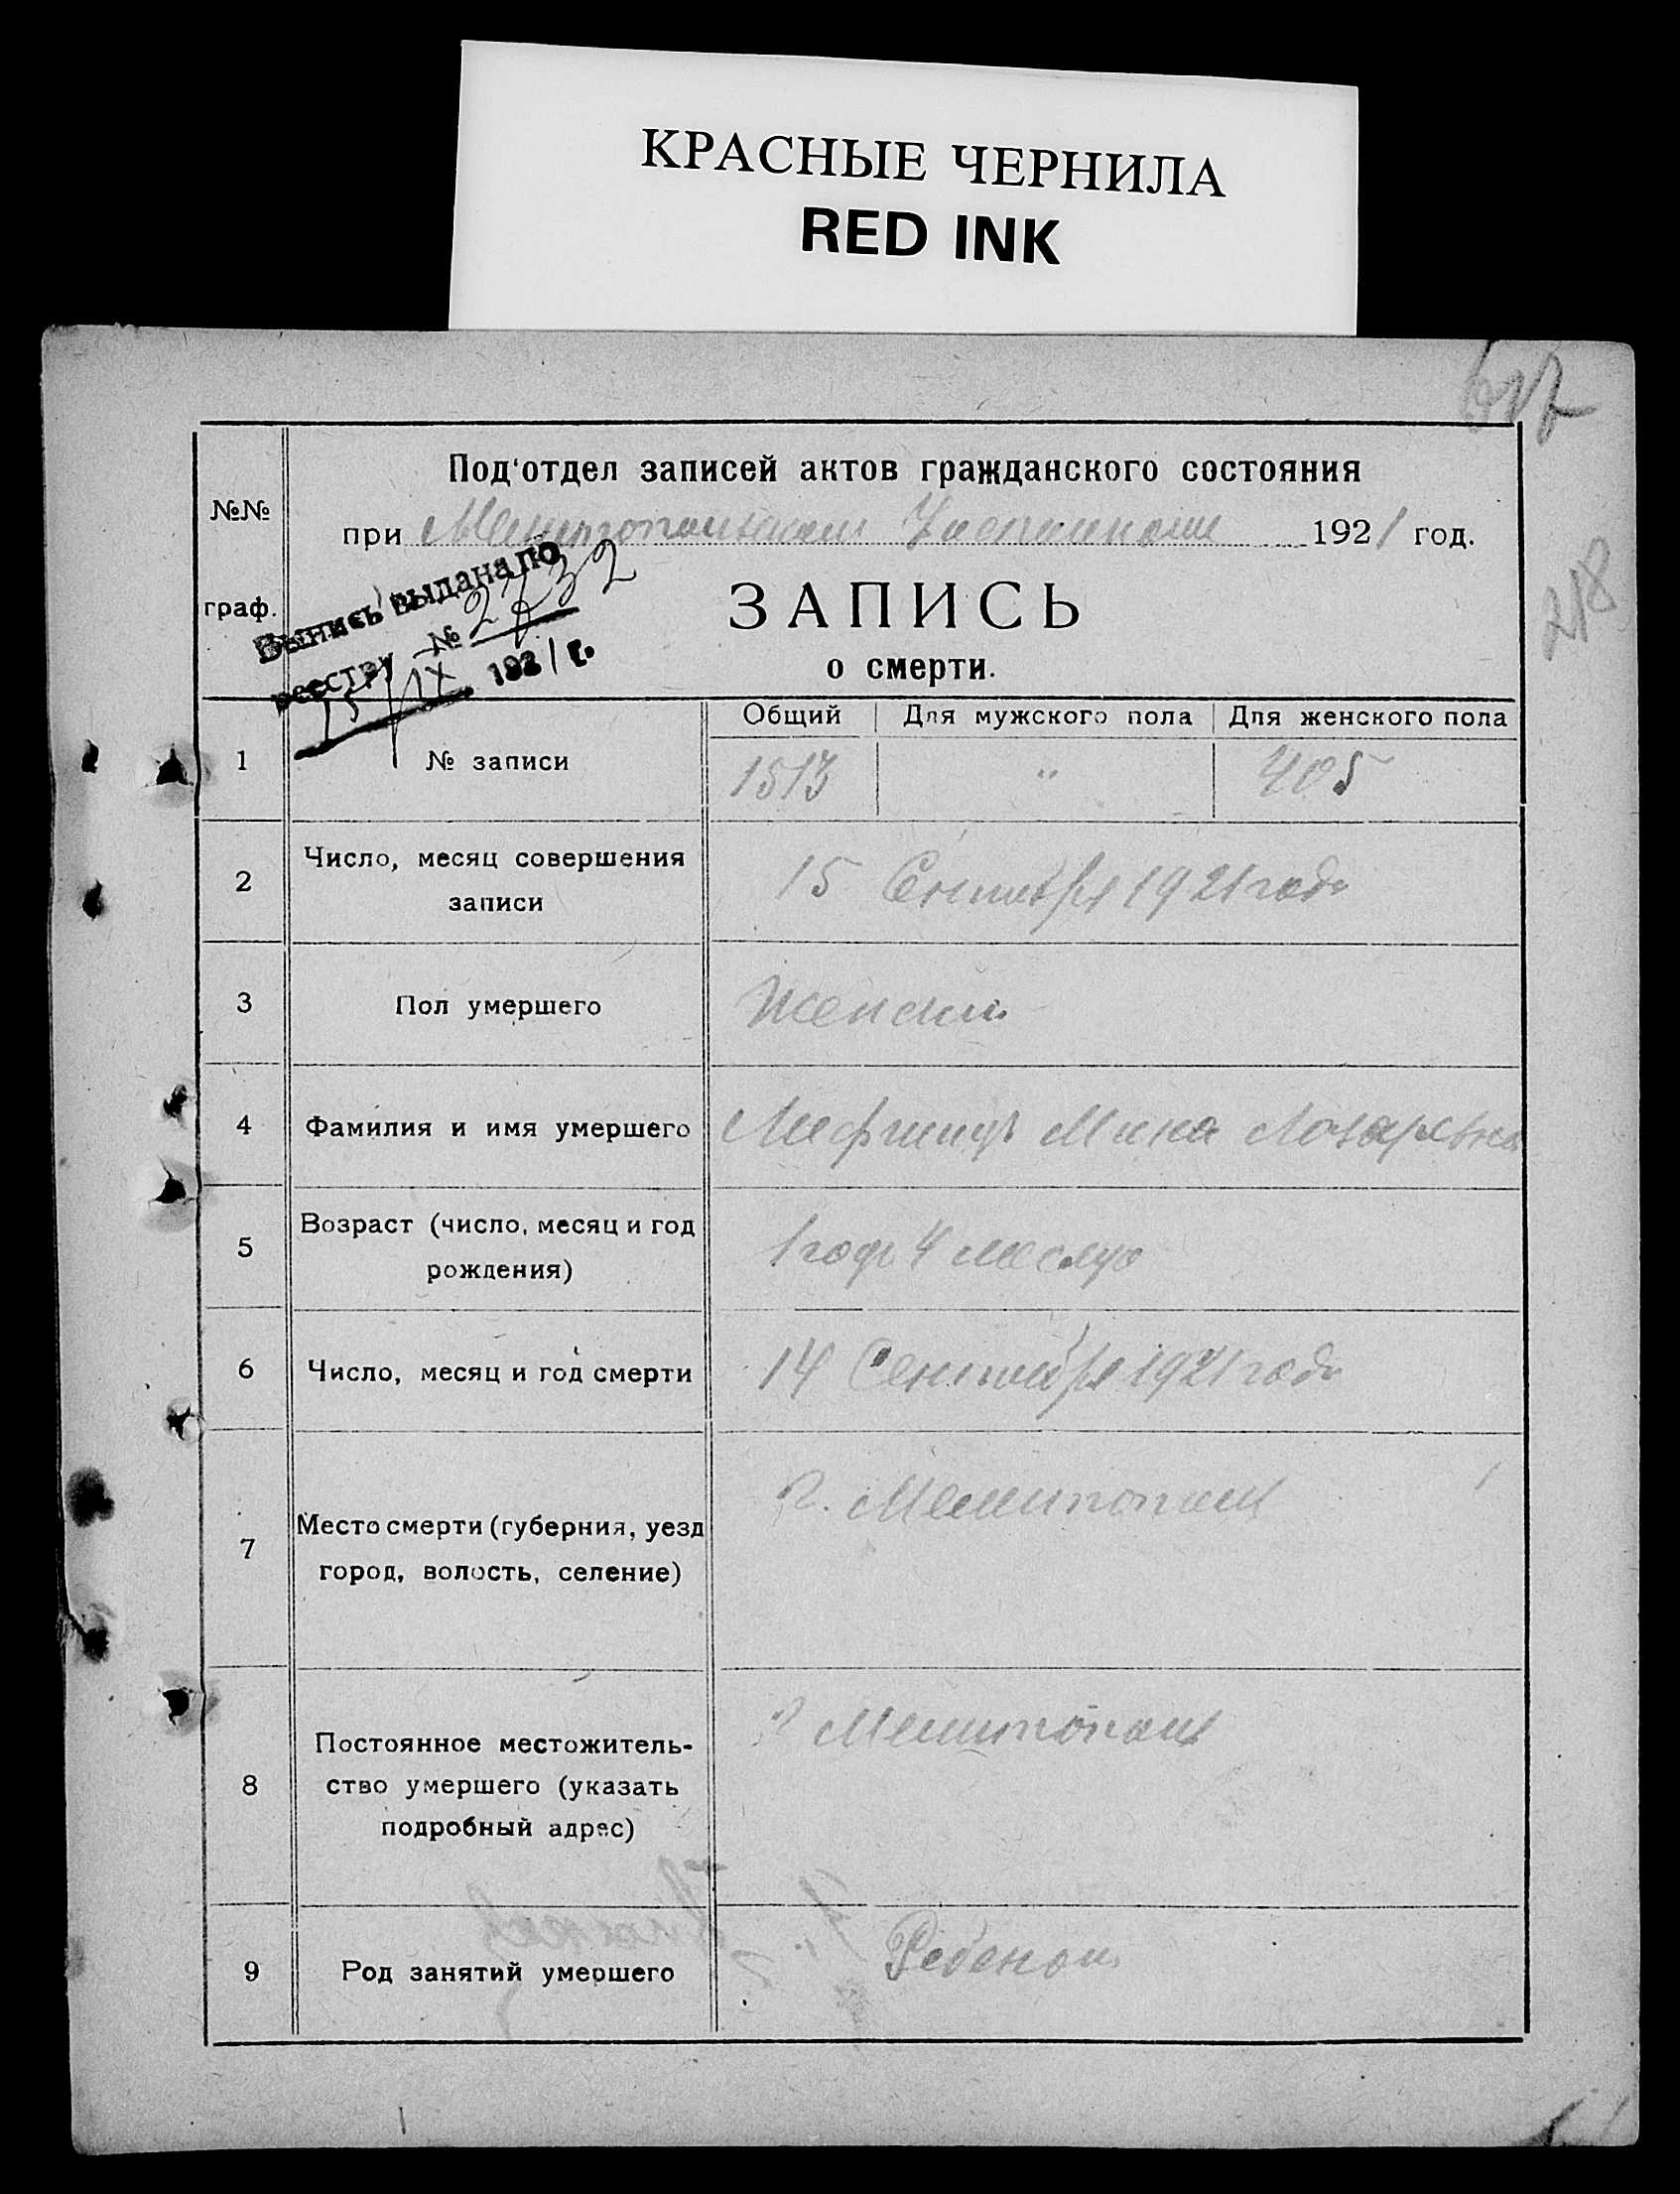 КРАСНЫЕ ЧЕРНИЛА
RED INK
Под'отдел записей актов гражданского состояния
№№
при Мелитопольском 1921 год.
граф.
Вынись выдана по
реестру № 2732
15/IX 1921 г.
ЗАПИСЬ
о смерти.
Общий Для мужского пола Для женского пола
1 № записи 1513 " 405
2 Число, месяц совершения
записи
15 Сентября 1921 года
3 Пол умершего Женский
4 Фамилия и имя умершего Мина Лазаревна
5 Возраст (число, месяц и год
рождения)
1 год 4 месяца
6 Число, месяц и год смерти 14 Сентября 1921 года
7 Место смерти (губерния, уезд
город, волость, селение)
г. Мелитополь
8 Постоянное местожитель-
ство умершего (указать
подробный адрес)
г Мелитополь
9 Род занятий умершего Ребенок
218